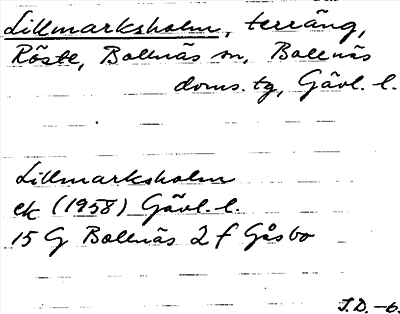 Lillmarksholm, terräng,
Röste, Bollnäs sn, Bollnäs
doms. tg, Gävl. l.
Lillmarksholm
ek (1958) Gävl. l.
15 G Bollnäs 2 f Gåsbo
J.D. -6.